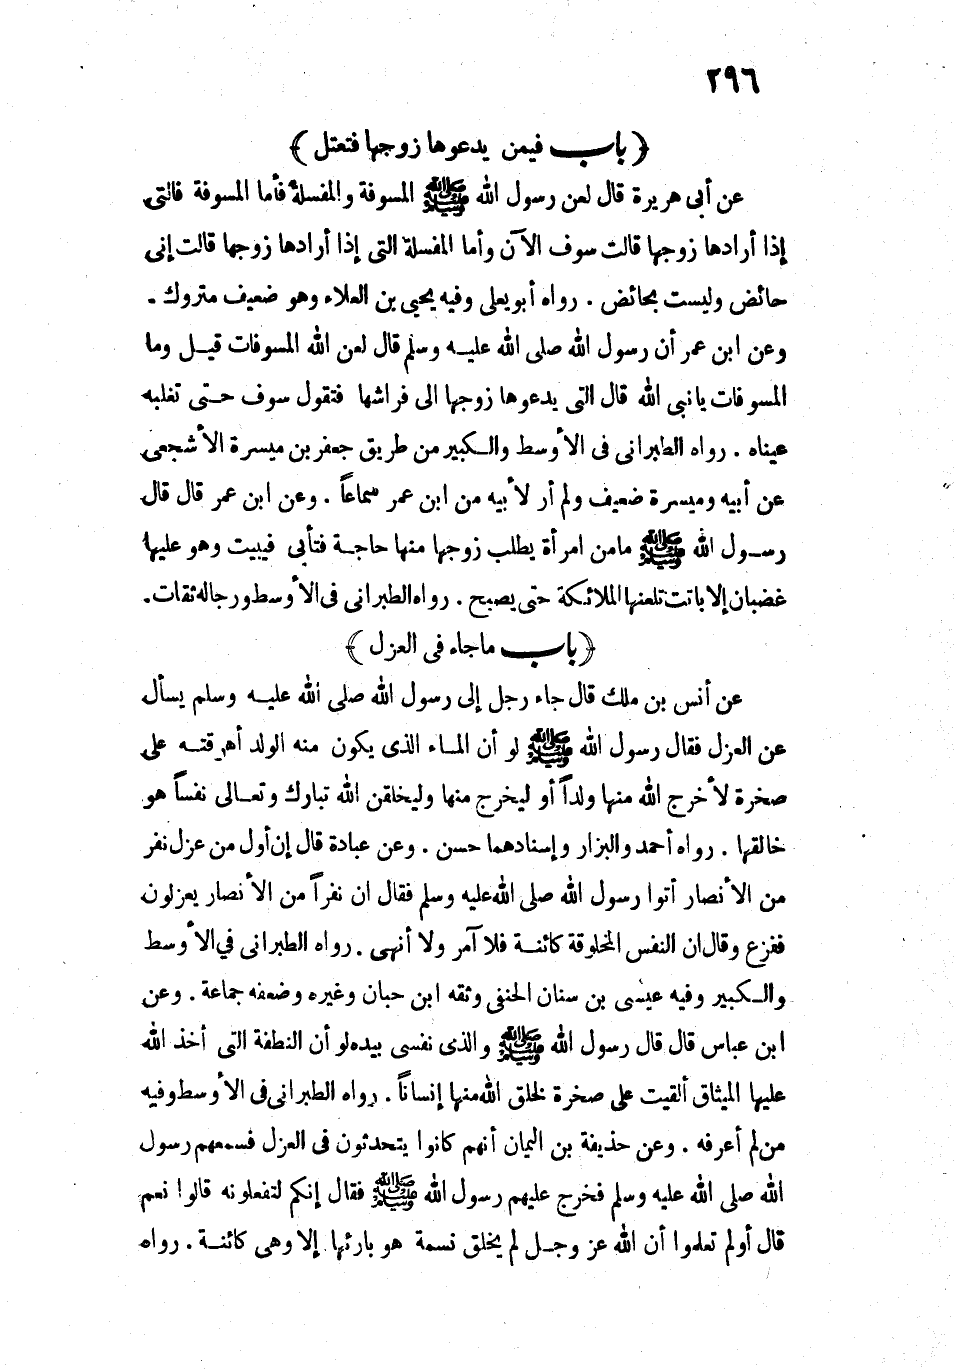 ٢٩٦
﴿ باب فيمن يدعوها زوجها فتعتل ﴾
عن أبي هريرة قال لعن رسول الله ﷺ المسوفة والمفسلة فأما المسوفة فالتى
إذا أرادها زوجها قالت سوف الآن وأما المفسلة التى إذا أرادها زوجها قالت إنى
حائض وليست بحائض . رواه أبو يعلى وفيه يحيى بن العلاء وهو ضعيف متروك .
وعن ابن عمر أن رسول الله صلى الله عليه وسلم قال لعن الله المسوفات قيل وما
المسوفات يانبى الله قال التى يدعوها زوجها الى فراشها فتقول سوف حتى تغلبه
عيناه . رواه الطبرانى فى الأوسط والكبير من طريق جعفر بن ميسرة الأشجعى
عن أبيه وميسرة ضعيف ولم أر لأبيه من ابن عمر سماعاً . وعن ابن عمر قال قال
رسول الله ﷺ مامن امرأة يطلب زوجها منها حاجة فتأبى فيبيت وهو عليها
غضبان إلا باتت تلعنها الملائكة حتى يصبح . رواه الطبرانى فى الأوسط ورجاله ثقات.
﴿ باب ماجاء فى العزل ﴾
عن أنس بن ملك قال جاء رجل إلى رسول الله صلى الله عليه وسلم يسأل
عن العزل فقال رسول الله ﷺ لو أن الماء الذى يكون منه الولد أهرقته على
صخرة لأخرج الله منها ولداً أو ليخرج منها وليخلقن الله تبارك وتعالى نفساً هو
خالقها . رواه أحمد والبزار وإسنادهما حسن . وعن عبادة قال إن أول من عزل نفر
من الأنصار أتوا رسول الله صلى الله عليه وسلم فقال ان نفراً من الأنصار يعزلون
ففزع وقال ان النفس المخلوقة كائنة فلا آمر ولا أنهى . رواه الطبرانى في الأوسط
والكبير وفيه عيسى بن سنان الحنفى وثقه ابن حبان وغيره وضعفه جماعة . وعن
ابن عباس قال قال رسول الله ﷺ والذى نفسى بيده لو أن النطفة التى أخذ الله
عليها الميثاق ألقيت على صخرة لخلق الله منها إنساناً . رواه الطبرانى فى الأوسط وفيه
من لم أعرفه . وعن حذيفة بن اليمان أنهم كانوا يتحدثون فى العزل فسمعهم رسول
الله صلى الله عليه وسلم فخرج عليهم رسول الله ﷺ فقال إنكم لتفعلونه قالوا نعم
قال أولم تعلموا أن الله عز وجل لم يخلق نسمة هو بارئها إلا وهى كائنة . رواه